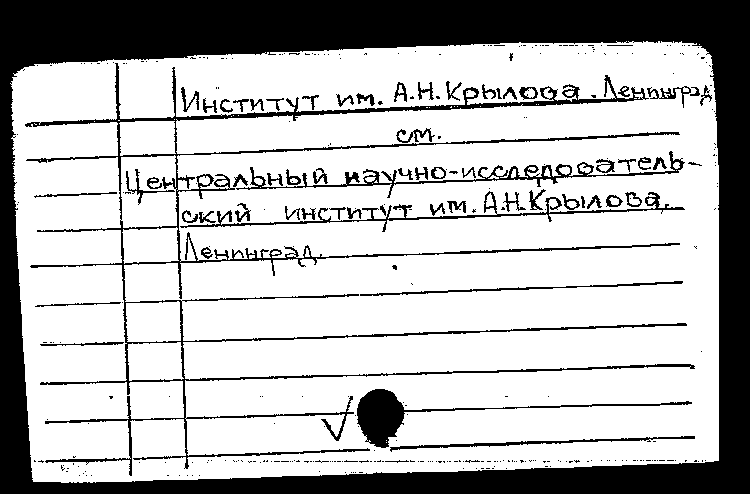 Институт им. А.Н.Крылова. Ленинград
см.
Центральный научно-исследователь-
ский институт им. А.Н.Крылова.
Ленинград.